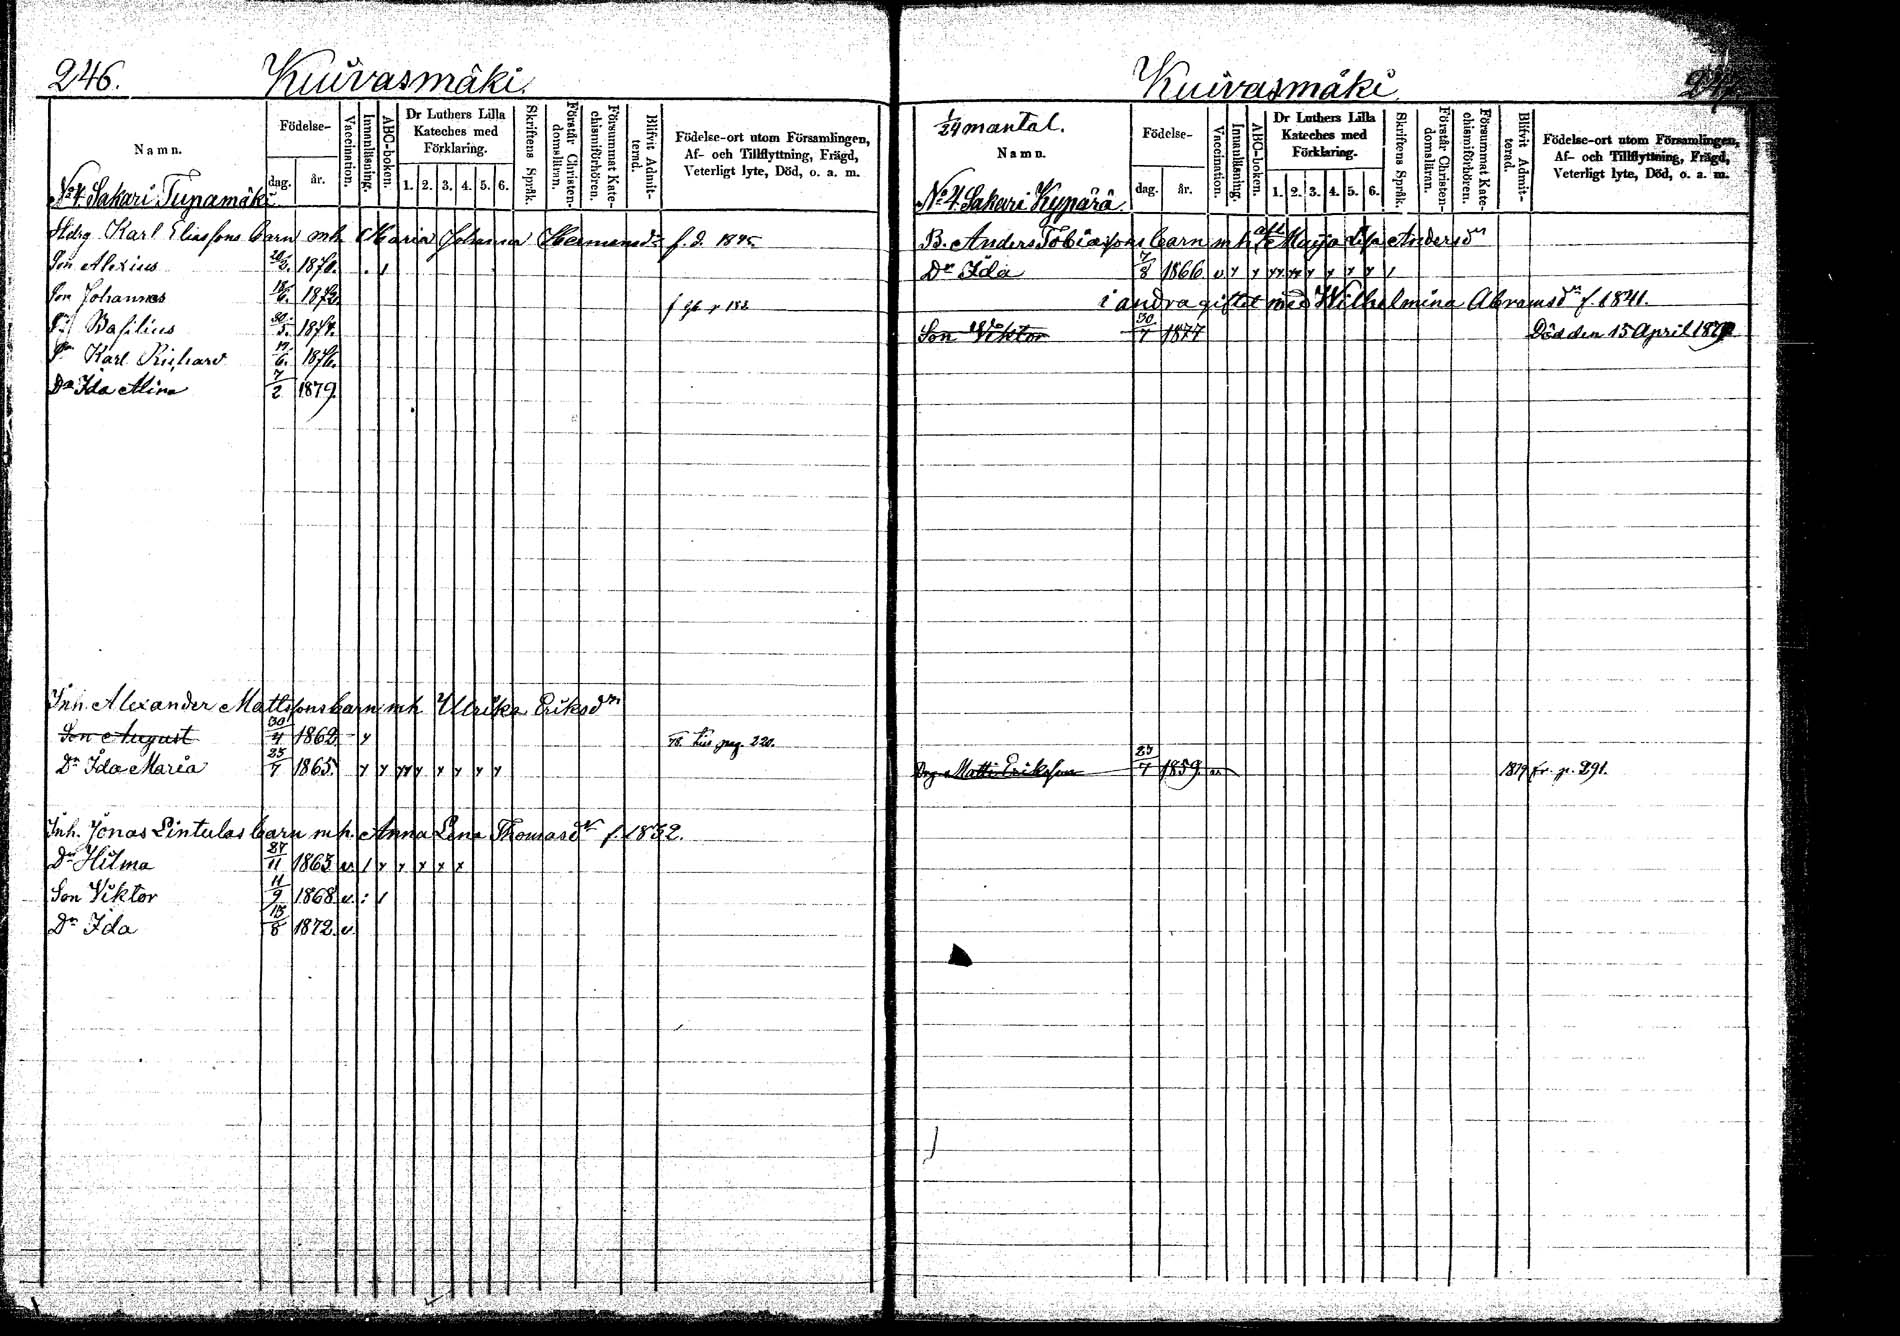 246. Kuivasmäki.
Namn.
Födelse-
dag. år.
Vaccination.
Innanläsning.
ABC-boken.
Dr Luthers Lilla Kateches med Förklaring.
1. 2. 3. 4. 5. 6.
Skriftens Språk.
Förstår Christendomsläran.
Försummat Katechismiförhören.
Blifvit Admitterad.
Födelse-ort utom Församlingen,
Af- och Tillflyttning, Frägd,
Veterligt lyte, Död, o. a. m.
No 4. Sakari Tupamäki
Karl Eliassons barn mh Maria Johanna Hermansdr f. d. 1845
Son Alexius 1870.
Son Johannes 18/6. 1872.
Sn Basilius 30/3. 1874.
Sn Karl Richard 17/6. 1876.
Dr Ida Alina 7/2 1879.
Inh. Alexander Mattssons barn mh Ulrika Eriksdr
Son August 30/4 1862 78. pag. 220.
Dr Ida Maria 25/7 1865.
Inh. Jonas Lintulas barn mh. Anna Lena Thomasdr f. 1832.
Dr Hilma 27/11 1863 v.
Son Viktor 11/9 1868 v.
Dr Ida 13/8 1872. v.
Kuivasmäki 247.
1/24 mantal.
Namn.
Födelse-
dag. år.
Vaccination.
Innanläsning.
ABC-boken.
Dr Luthers Lilla Kateches med Förklaring.
1. 2. 3. 4. 5. 6.
Skriftens Språk.
Förstår Christendomsläran.
Försummat Katechismiförhören.
Blifvit Admitterad.
Födelse-ort utom Församlingen,
Af- och Tillflyttning, Frägd,
Veterligt lyte, Död, o. a. m.
No 4. Sakari Kypärä
B. Anders Tobiassons barn mh afl. Maija Lisa Andersdr
Dr Ida 7/8 1866 v
i andra giftet med Wilhelmina Abramsdr f. 1841.
Son Viktor 30/7 1877 Död den 15 April 1879
Drg. Matti Eriksson 27/7 1859. 1879 fr. p. 291.